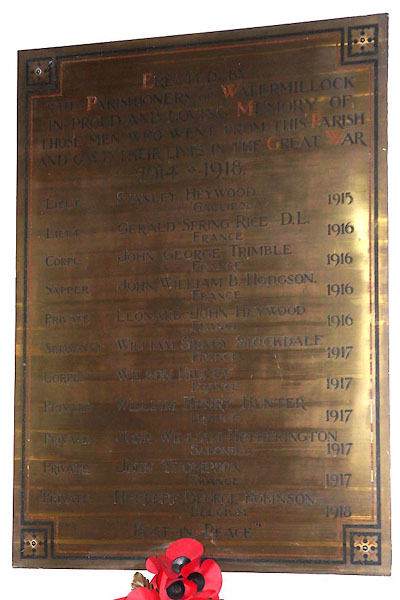 Erected by
the Parishioners of Watermillock
in Proud and Loving Memory of
those Men who went from this Parish
and gave their lives in the Great War
1914 1918.
Lieut. Stanley Heywood 1915
Gallipoli
Lieut. Gerald Spring Rice D.L. 1916
France
Corpl. John George Trimble 1916
France
Sapper John William B. Hodgson. 1916
France
Private Leonard John Heywood 1916
France
Sergeant William Stockdale 1917
France
Corpl. 1917
France
Private William Henry Hunter 1917
France
Private John William Hetherington 1917
Salonica
Private John Thompson 1917
France
Private Herbert George Robinson 1918
Belgium
"Rest in Peace"